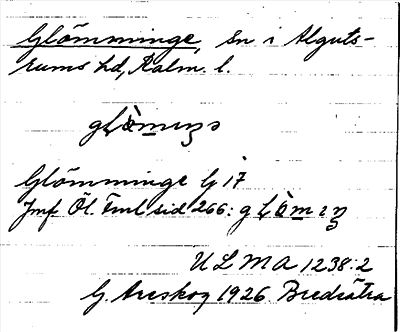 Glömminge, sn i Alguts-
rums hd, Kalm. l.
Glömminge G 17
Jmf. Öl. Fml sid 266:
ULMA 1238:2
G. Areskog 1926 Bredsätra